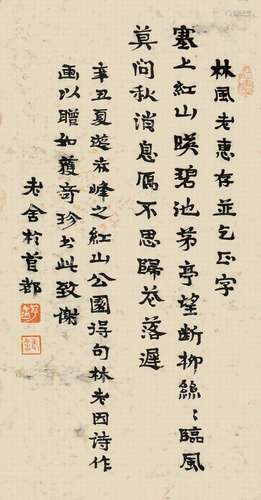 林風老惠存並乞正字
塞上紅山暎碧池茅亭望断柳絲絲臨風
莫问秋消息雁不思歸花落遲
辛丑夏遊赤峰之紅山公園得句林老因詩作
画以贈如獲奇珍書此致谢
老舍於首都